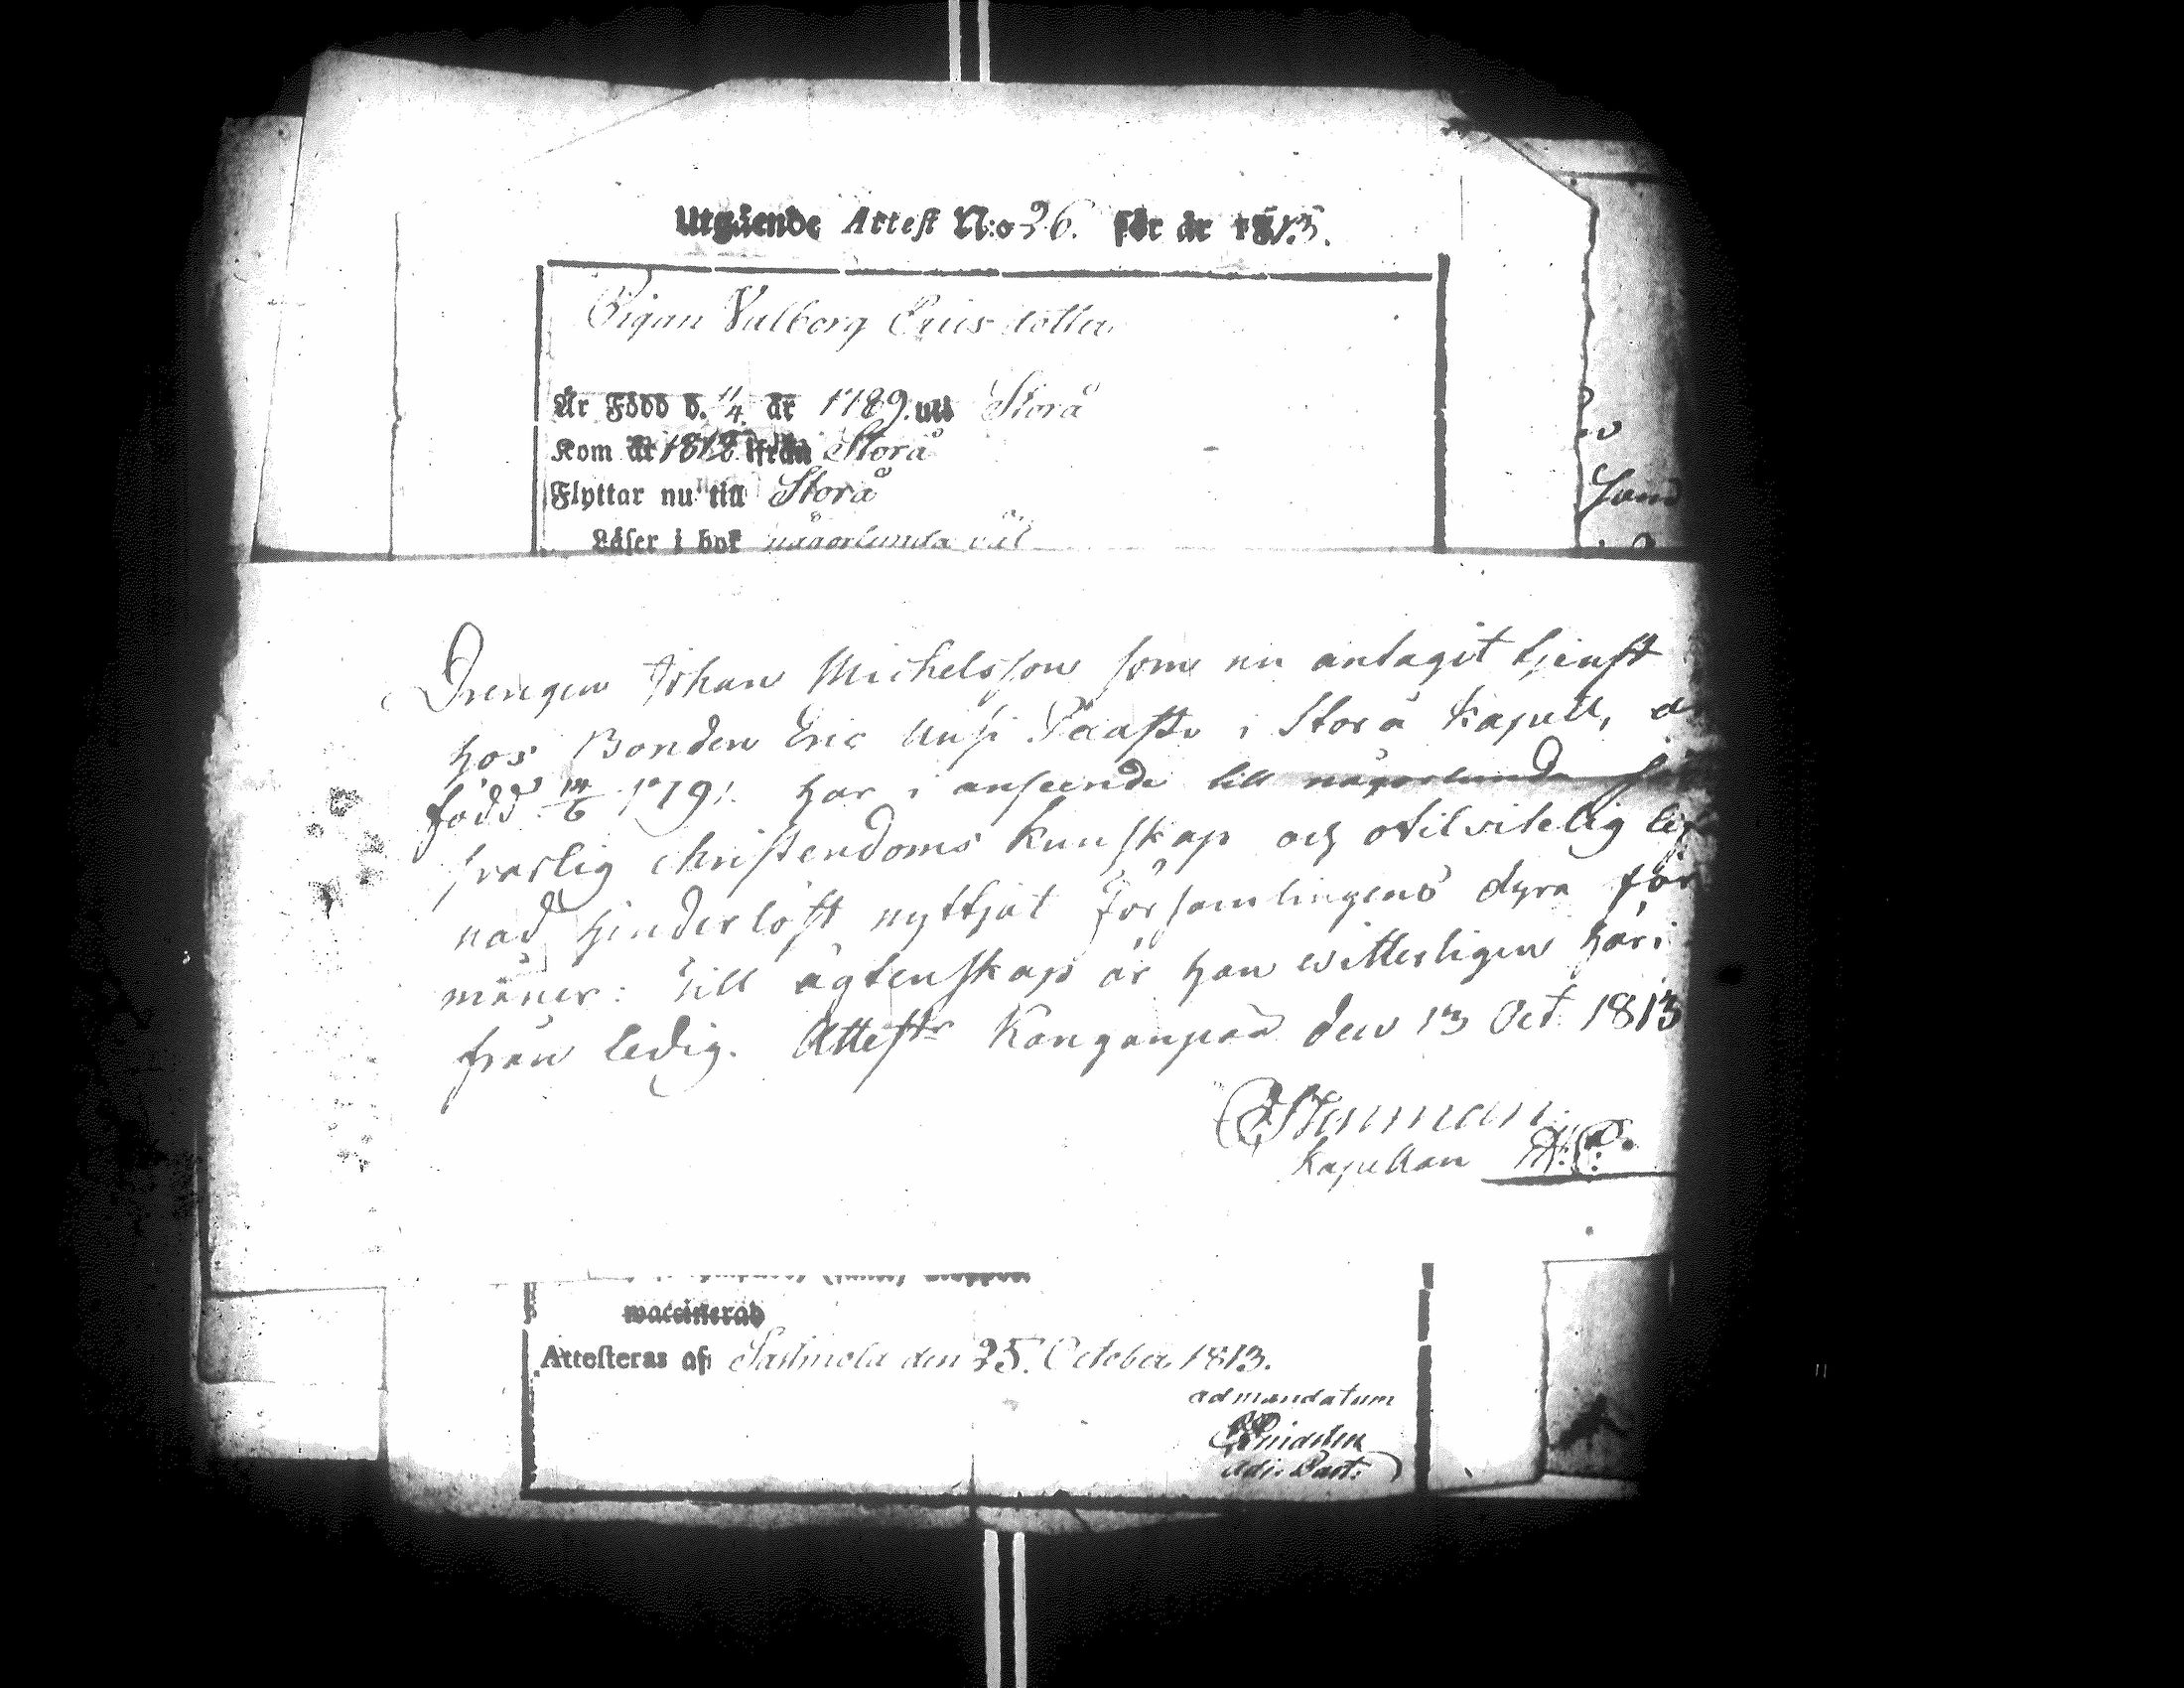 Utgående Attest N:o 26. för år 1813.
Pigan Valborg Ericsdotter
Är Född d. 11/4 år 1789. uti Storå
Kom år 1812 ifrån Storå
Flyttar nu till Storå
Läser i bok någorlunda väl
Drengen Johan Michelsson som nu antagit tjenst
hos Bonden Eric i Storå Kapell,
född 14/6 1791. har i anseende till någorlunda
svarlig christendoms kunskap och otilvitelig lef
nad hinderlöst nyttjat Församlingens dyra för
måner: till ägtenskap är han witterligen häri
från ledig. Attestr Kanganpää den 13 Oct. 1813
Kapellan
waccinerad
Attesteras af Sastmola den 25. October 1813.
ad mandatum
Adj. Past.